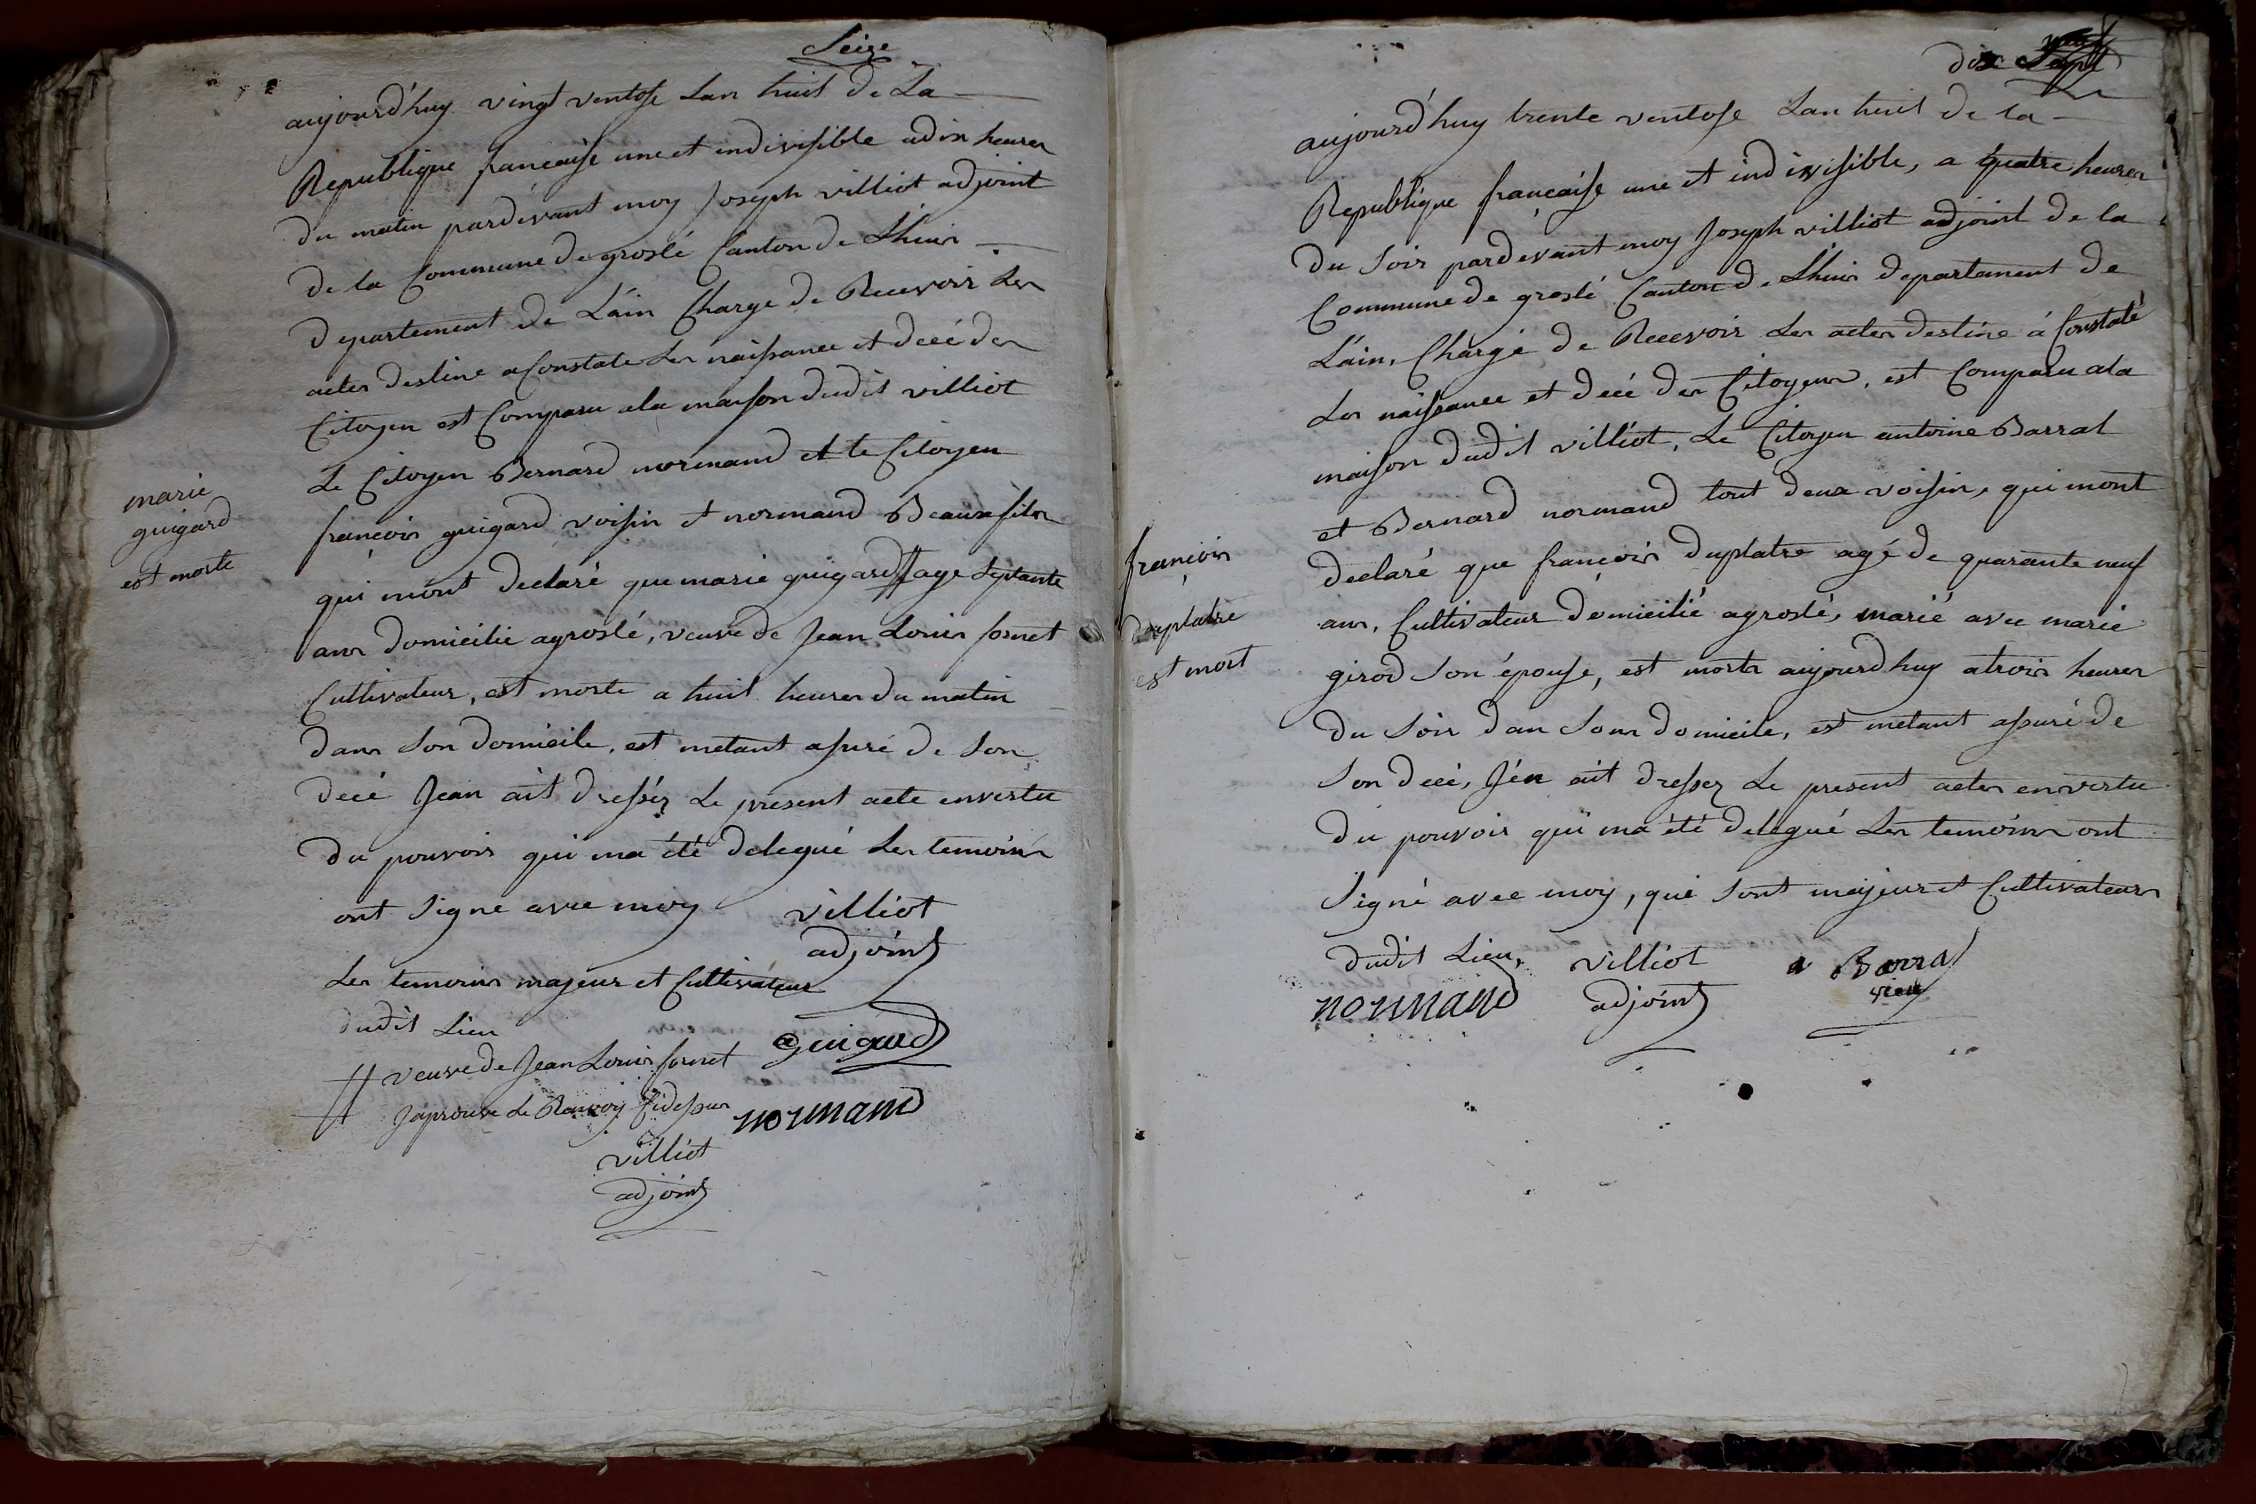 Seize
aujourd'huy vingt ventose Lan huit de La
Republique francaise une et indivisible adix heures
du matin pardevant moy Joseph villiot adjoint
de la Commune de groslé Canton de Lhuis
departement de Lain Charge de Recevoir Les
actes destine a Constate Les naissance et decé des
Citoyen est Comparu ala maison dudit villiot
Le Citoyen Bernard normand et le Citoyen
francois guigard voisin et normand Beaux fils
qui mont declaré que marie guigard # age septante
ans domicilie agroslé, veuve de Jean Louis fornet
Cultivateur, est morte a huit heures du matin
dans Son domicile, est metant asuré de Son
decé Jean ait dressez Le present acte envertu
du pouvoir qui ma été delegué Les temoins
ont Signe avec moy villiot
adjoint
Les temoins majeur et Cultivateur
dudit Lieu
guigard
# veuve de Jean Louis fornet
Japrouve Le Renvoy Cidessus
normand
villiot
adjoint
marie
guigard
est morte
dix Sept
aujourd'huy trente ventose Lan huit de la
Republique francaise une et indivisible, a quatre heures
du Soir pardevant moy Joseph villiot adjoint de la
Commune de groslé Canton de Lhuis departament de
Láin, Chargé de Recevoir Les actes destine á Constaté
Les naissance et decé des Citoyens, est Comparu ala
maison dudit villiot, Le Citoyen antoine Barral
et Bernard normand tout deux voisin, qui mont
declaré que francois duplatre agé de quarante neuf
ans, Cultivateur domicilié agroslé, marié avec marie
girod Son épouse, est morts aujourdhuy atrois heures
du Soir dan Sons domicile, est metant assuré de
Son decé, Jén ait dressez Le present actes envertu
du pouvoir qui ma été delegué Les temoins ont
Signé avec moy, qui Sont majeur et Cultivateurs
dudit Lieu, villiot a Barral
normand adjoint
francois
duplatre
est mort